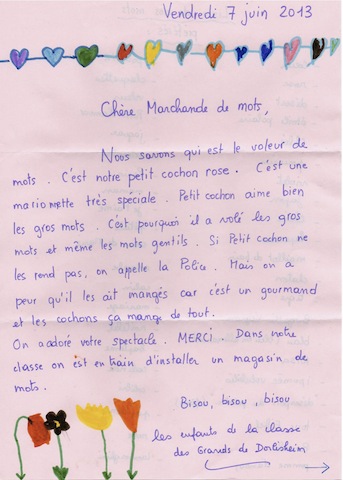 Vendredi 7 juin 2013
Chère Marchande de mots,
Nous savons qui est le voleur de
mots. C'est notre petit cochon rose. C'est une
marionnette très spéciale. Petit cochon aime bien
les gros mots. C'est pourquoi il a volé les gros
mots et même les mots gentils. Si Petit cochon ne
les rend pas, on appelle la Police. Mais on a
peur qu'il les ait mangés car c'est un gourmand
et les cochons ça mange de tout.
On a adoré votre spectacle. MERCI. Dans notre
classe on est en train d'installer un magasin de
mots.
Bisou, bisou, bisou
les enfants de la classe
des Grands de Dorlisheim